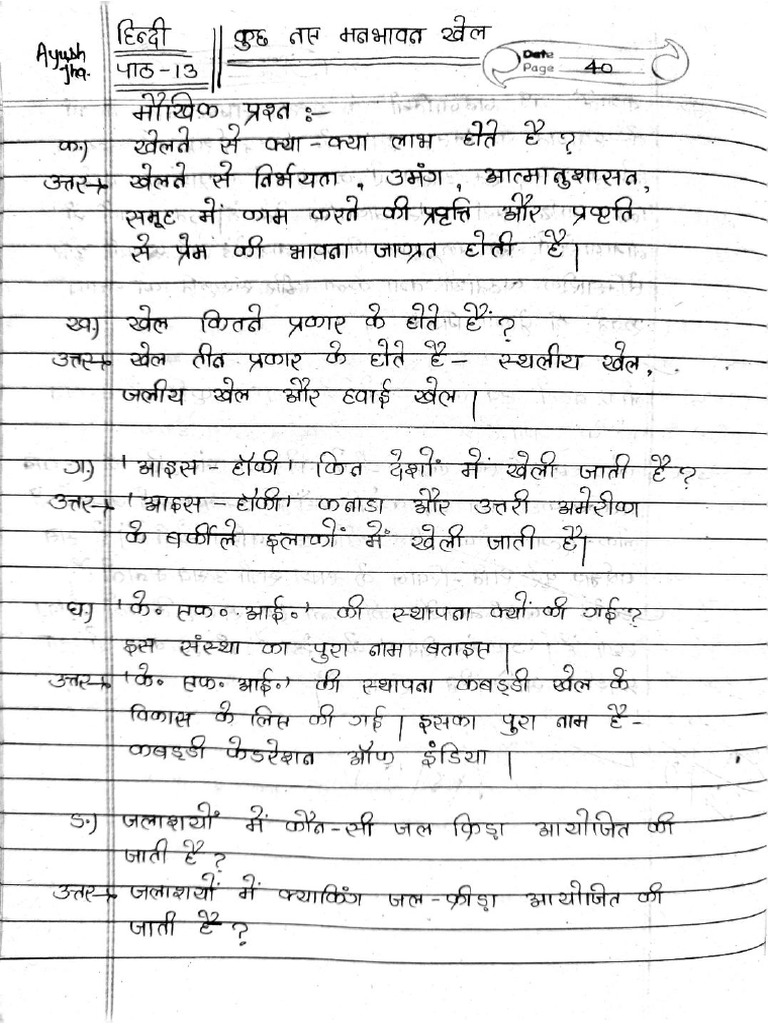 Ayush Jha.
हिन्दी
पाठ-13
कुछ नए मनभावन खेल
Date
Page 40
मौखिक प्रश्न :-
क.) खेलने से क्या-क्या लाभ होते है?
उत्तर→ खेलने से निर्भयता, उमंग, आत्मानुशासन,
समूह में काम करने की प्रवृत्ति और प्रकृति
से प्रेम की भावना जाग्रत होती है।
ख.) खेल कितने प्रकार के होते हैं?
उत्तर→ खेल तीन प्रकार के होते है- स्थलीय खेल,
जलीय खेल और हवाई खेल।
ग.) 'आइस-हॉकी' किन देशों में खेली जाती है?
उत्तर→ 'आइस-हॉकी' कनाडा और उत्तरी अमेरीका
के बर्फीले इलाकों में खेली जाती है।
घ.) 'के॰ एफ॰ आई॰' की स्थापना क्यों की गई?
इस संस्था का पुरा नाम बताइए।
उत्तर→ 'के॰ एफ॰ आई॰' की स्थापना कबड्डी खेल के
विकास के लिए की गई। इसका पुरा नाम है-
कबड्डी फेडरेशन ऑफ़ इंडिया।
ङ.) जलाशयों में कौन-सी जल क्रिड़ा आयोजित की
जाती है?
उत्तर→ जलाशयों में क्याकिंग जल-क्रीड़ा आयोजित की
जाती है?